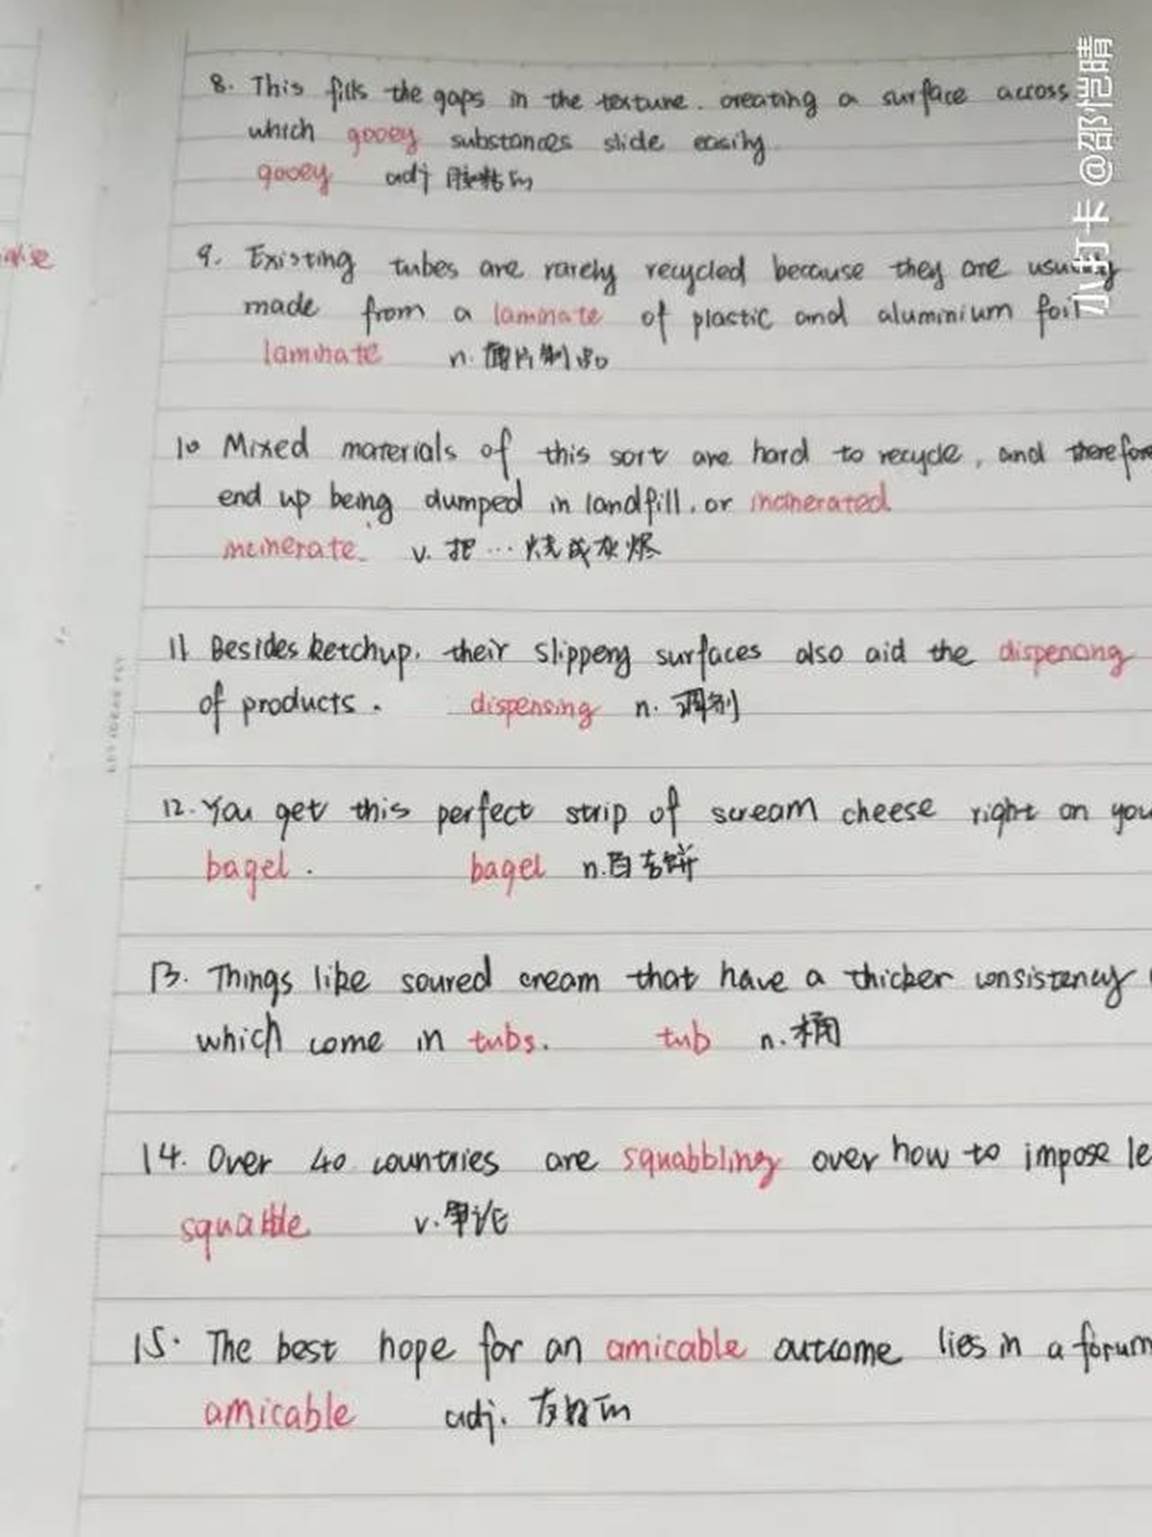 8. This fills the gaps in the texture. creating a surface across
which gooey substances slide easily
gooey adj 胶粘的
9. Existing tubes are rarely recycled because they are usually
made from a laminate of plastic and aluminium foil
laminate n. 薄片制品
10 Mixed materials of this sort are hard to recycle, and therefore
end up being dumped in landfill, or incinerated
incinerate v. 把…烧成灰烬
11 Besides ketchup, their slippery surfaces also aid the dispencing
of products. dispensing n. 调剂
12. You get this perfect strip of scream cheese right on you
bagel. bagel n.百吉饼
13. Things like soured cream that have a thicker consistency
which come in tubs. tub n.桶
14. Over 40 countries are squabbling over how to impose le
squabble v.争论
15. The best hope for an amicable outcome lies in a forum
amicable adj. 友好的
小打卡 @邵恺晴